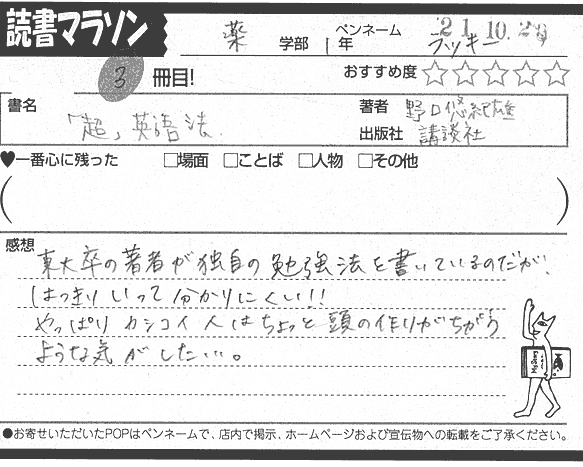 読書マラソン
薬 学部 1年 ペンネーム ラッキー
21.10.29
3 冊目! おすすめ度 ☆☆☆☆☆
書名 「超」英語法
著者 野口悠紀雄
出版社 講談社
♥一番心に残った □場面 □ことば □人物 □その他
( )
感想
東大卒の著者が独自の勉強法を書いているのだが、
はっきりいって分かりにくい!!
やっぱりカシコイ人はちょっと頭の作りがちがう
ような気がした…。
●お寄せいただいたPOPはペンネームで、店内で掲示、ホームページおよび宣伝物への転載をご了承ください。